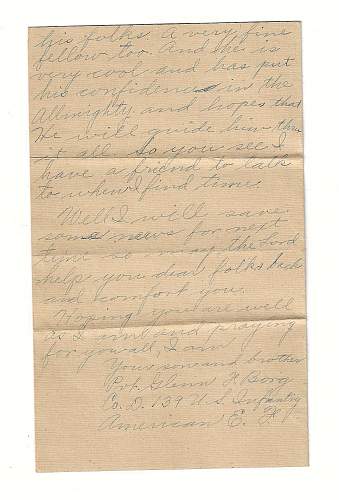 his folks. A very fine
fellow too. And he is
very cool and has put
his confidence in the
Allmighty and hopes that
He will guide him thru
it all so you see I
have a friend to talk
to when I find time.
Well I will save
some news for next
time so may the Lord
help you dear folks back
and comfort you.
Hoping you are well
as I am and praying
for you all, I am
Your son and brother
Pvt. Glenn H Borg
Co. D. 139 U.S. Infantry
American E. F.